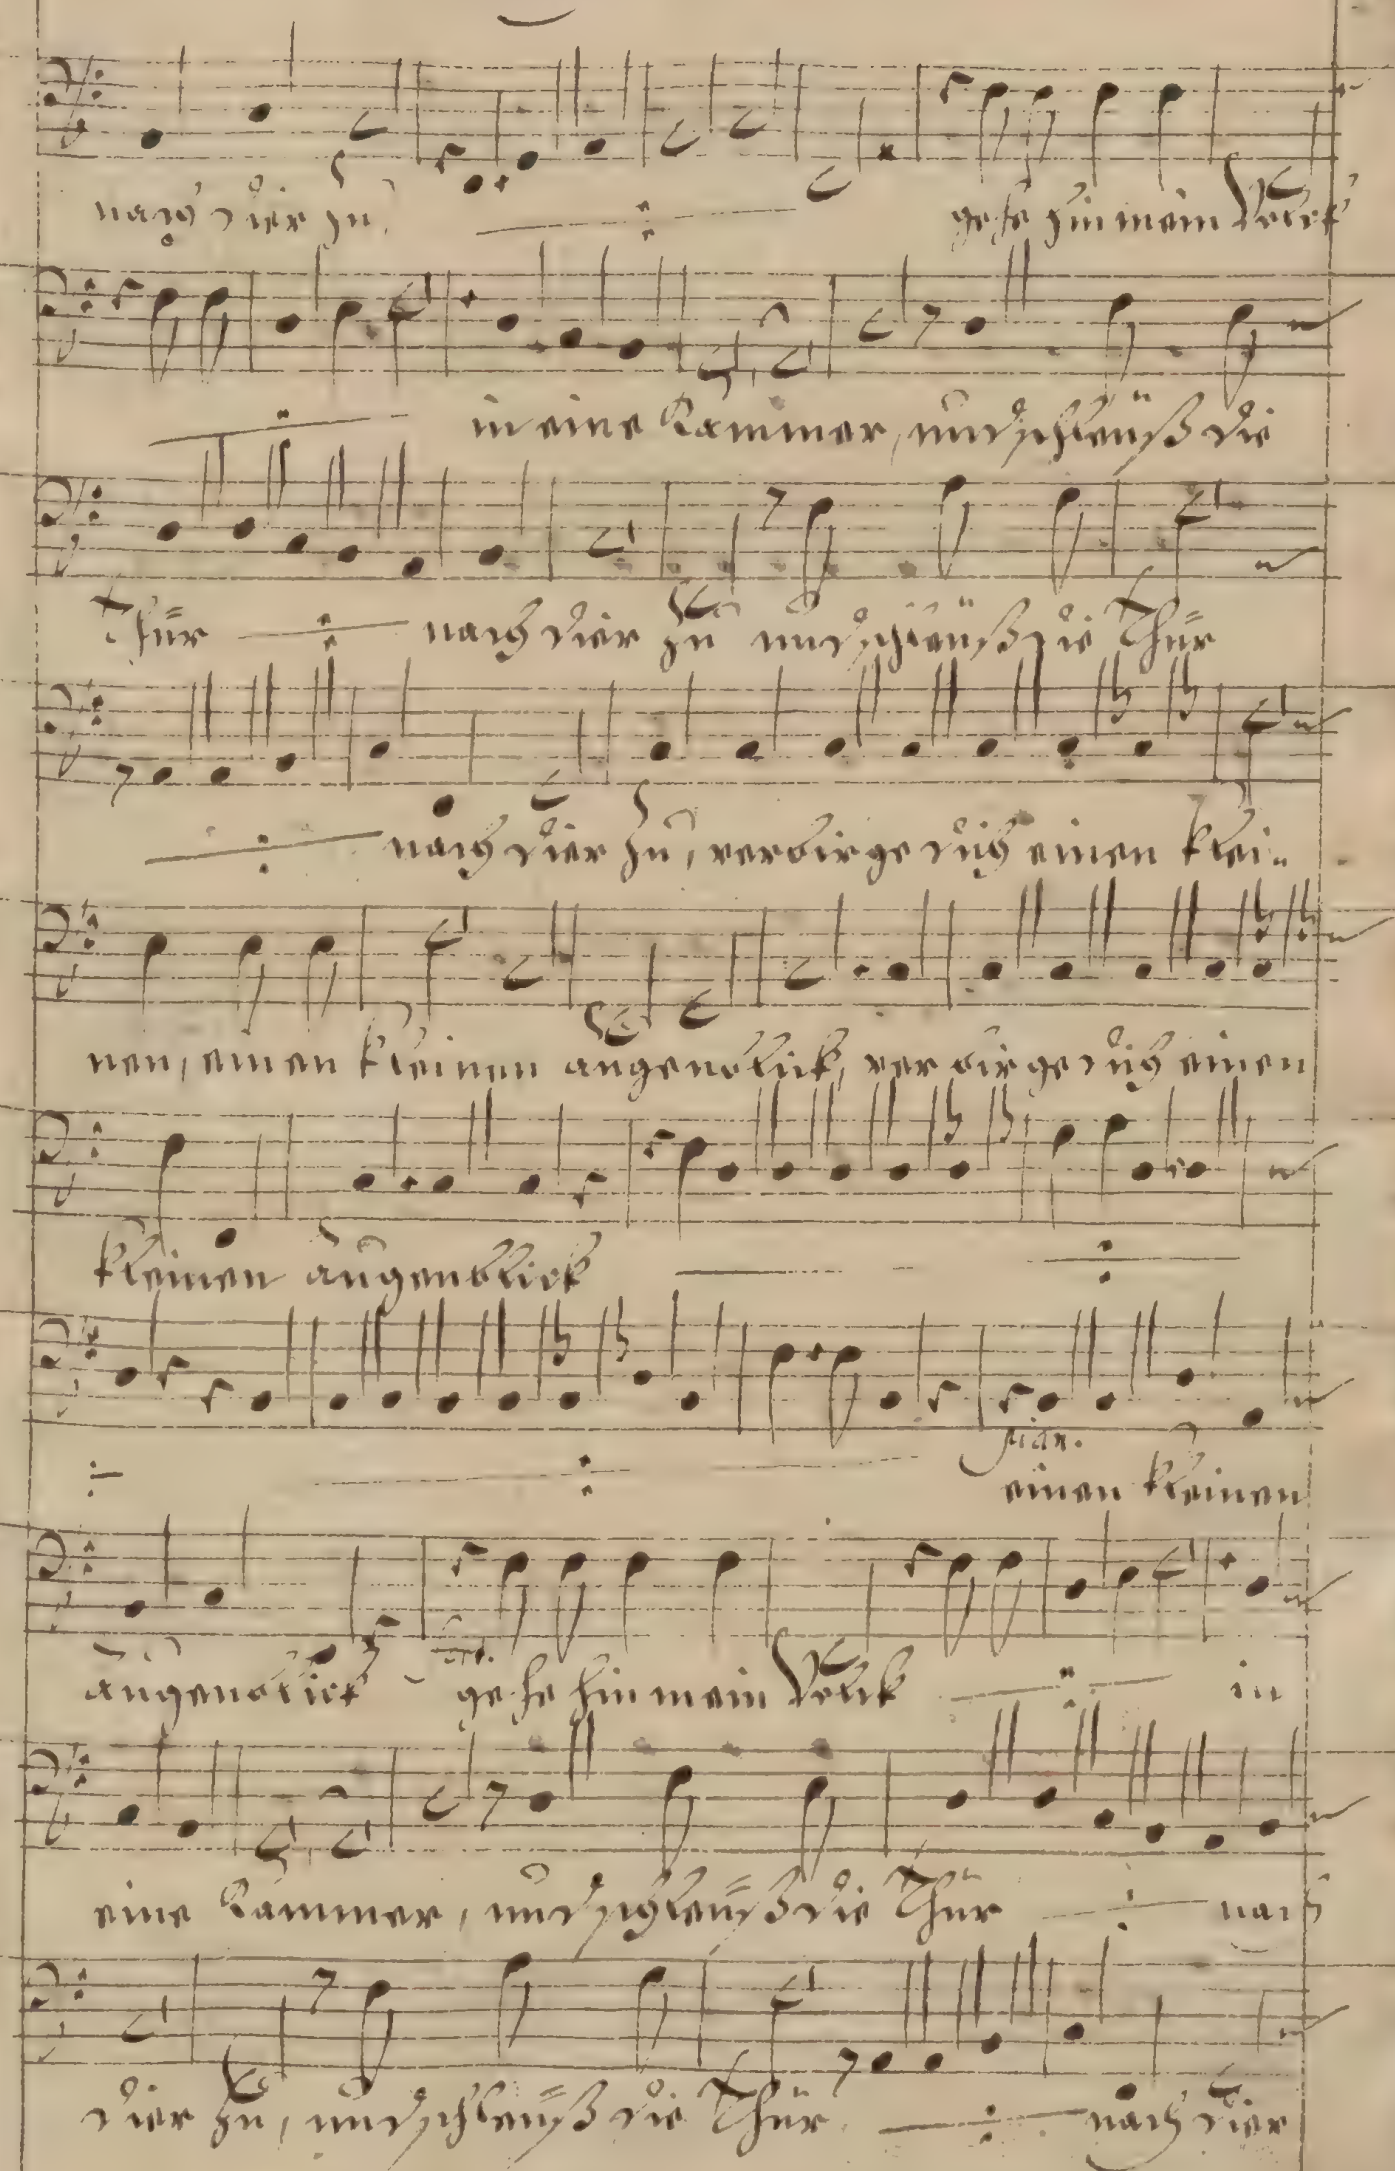 nach dier zu, gehe hin mein Volck
in eine Kammer, und schleüß die
Thür nach dier zu und schleüß die Thür
nach dier zu, verbirge dich einen klei-
nen, einen kleinen augenblick, verbirge dich einen
kleinen augenblick
pian.
einen kleinen
augenblick gehe hin mein Volck in
eine Kammer, und schleüß die Thür nach
dier zu, und schleüß die Thür nach dier